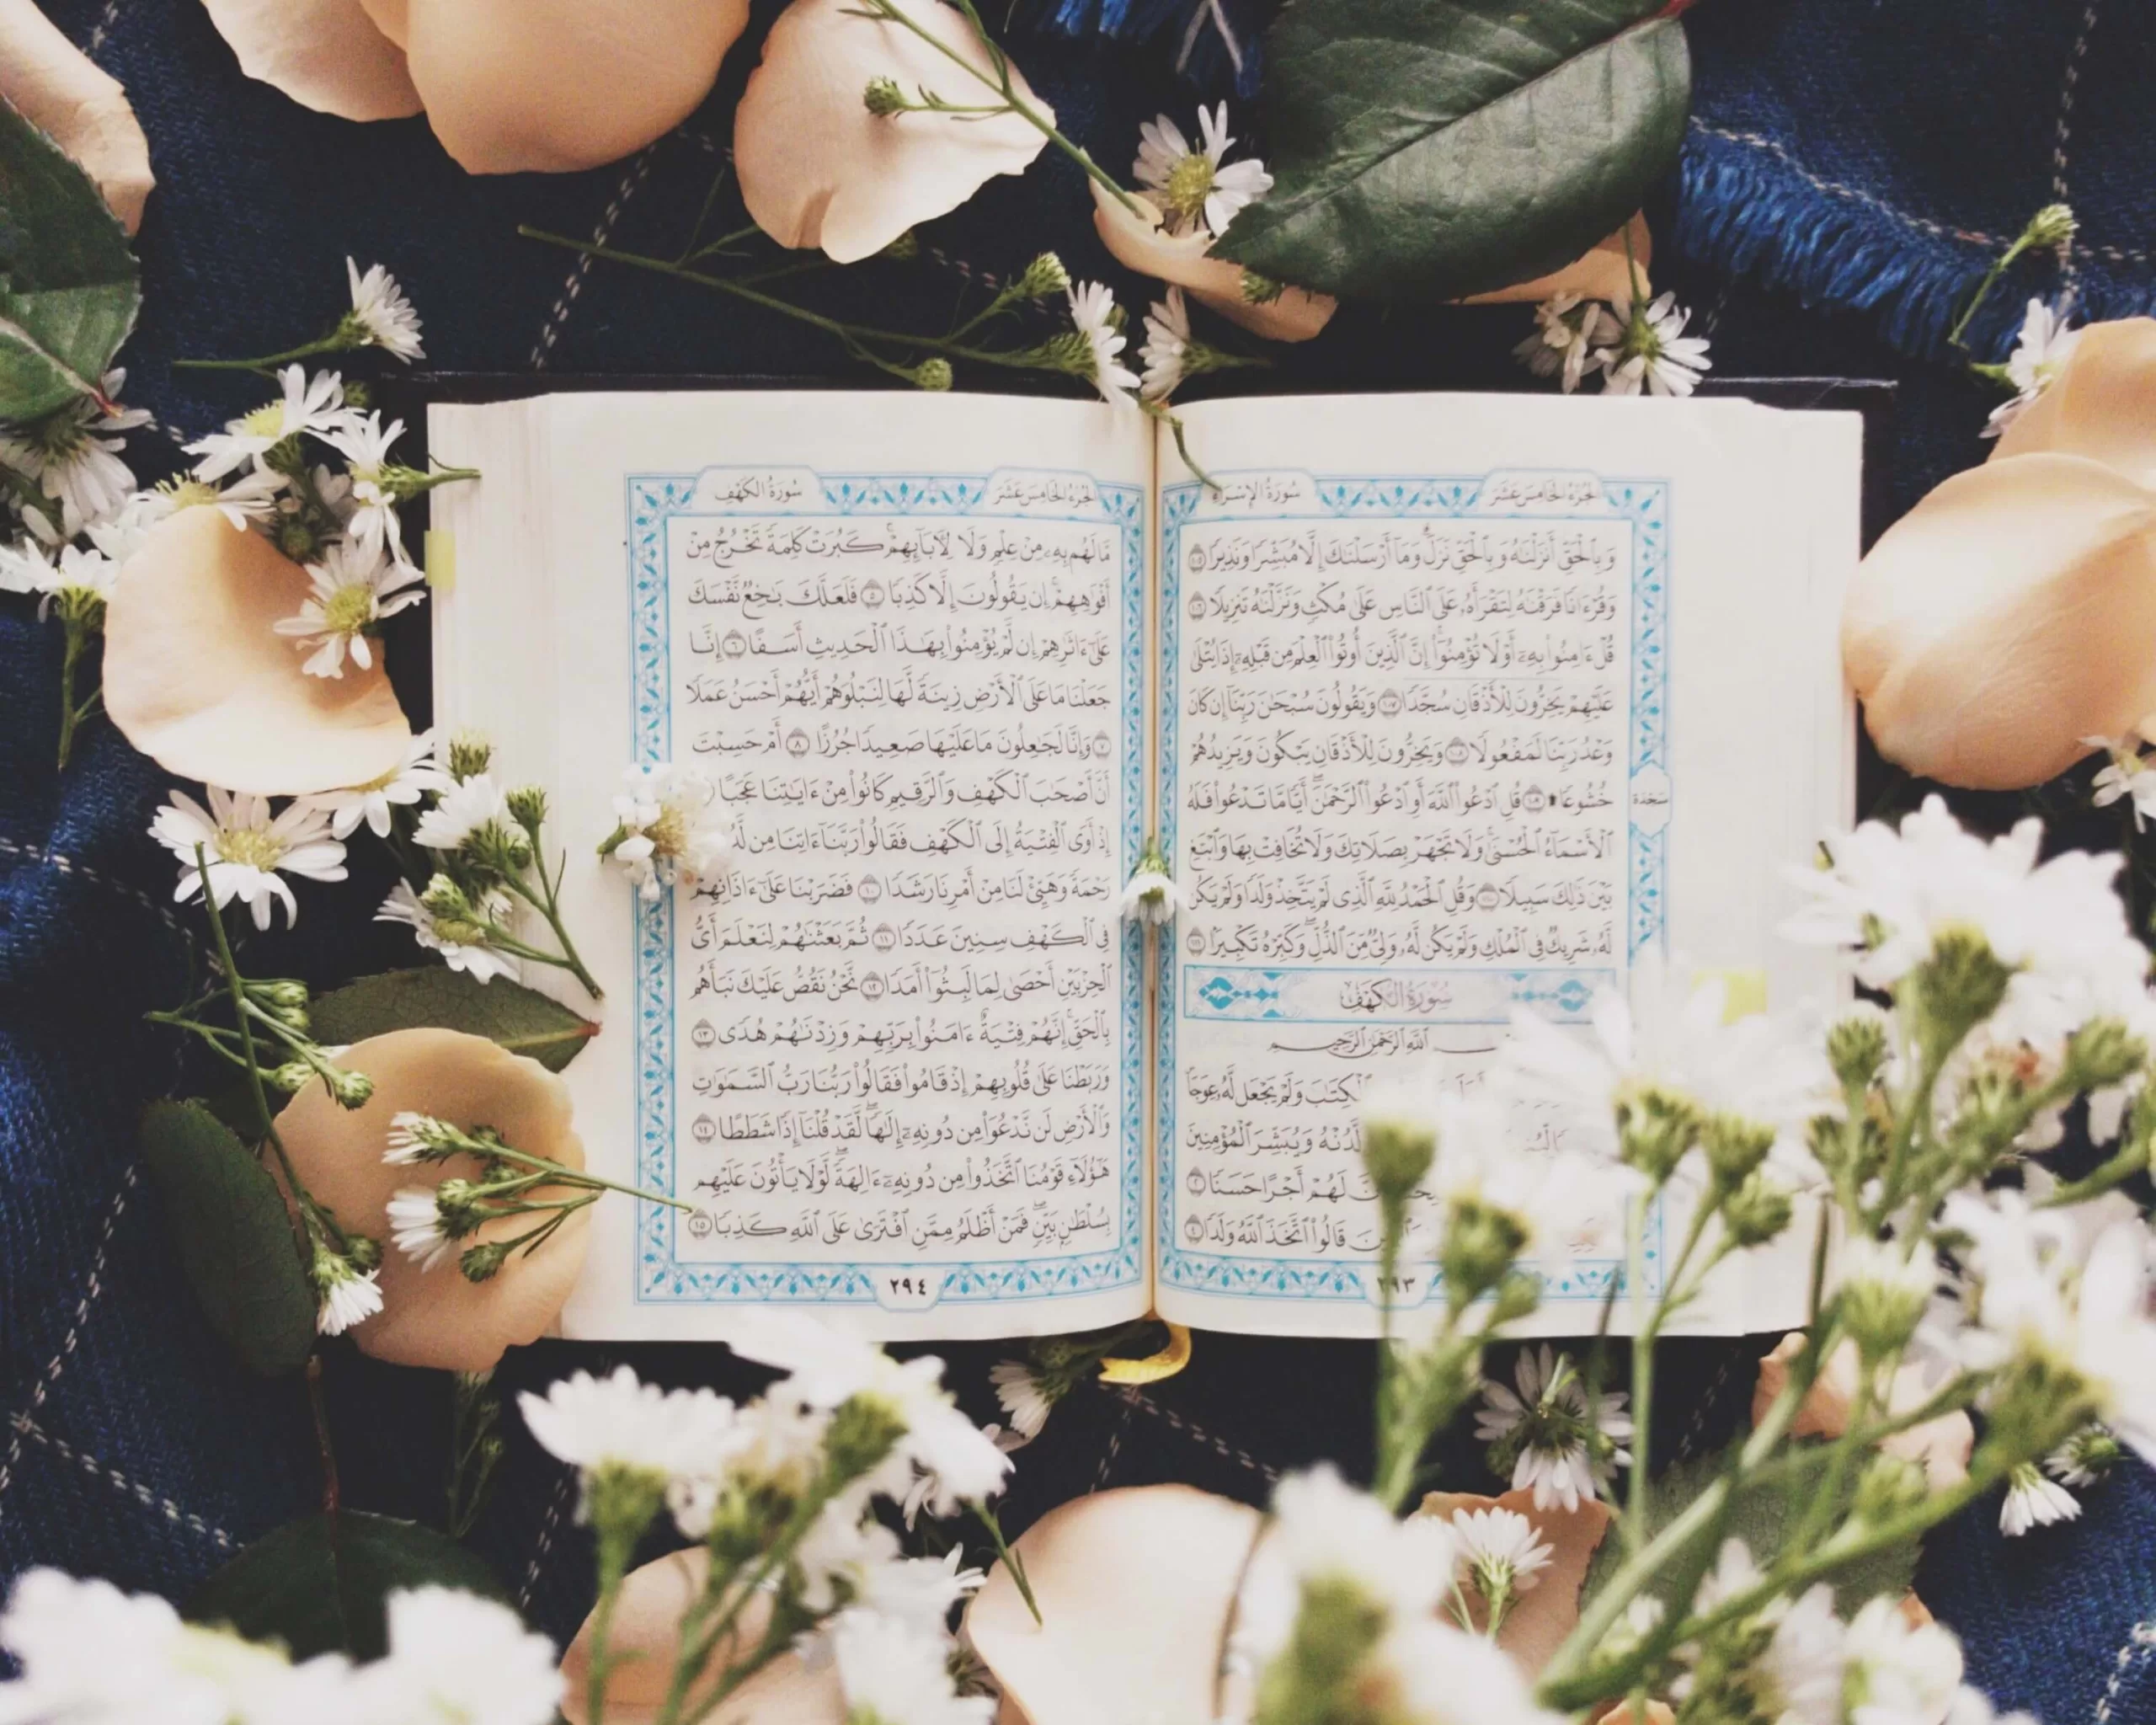 الجزء الخامس عشر
سورة الإسراء
وَبِٱلْحَقِّ أَنزَلْنَٰهُ وَبِٱلْحَقِّ نَزَلَ ۗ وَمَآ أَرْسَلْنَٰكَ إِلَّا مُبَشِّرًا وَنَذِيرًا ١٠٥
وَقُرْءَانًا فَرَقْنَٰهُ لِتَقْرَأَهُۥ عَلَى ٱلنَّاسِ عَلَىٰ مُكْثٍ وَنَزَّلْنَٰهُ تَنزِيلًا ١٠٦
قُلْ ءَامِنُوا۟ بِهِۦٓ أَوْ لَا تُؤْمِنُوٓا۟ ۚ إِنَّ ٱلَّذِينَ أُوتُوا۟ ٱلْعِلْمَ مِن قَبْلِهِۦٓ إِذَا يُتْلَىٰ
عَلَيْهِمْ يَخِرُّونَ لِلْأَذْقَانِ سُجَّدًا ١٠٧ وَيَقُولُونَ سُبْحَٰنَ رَبِّنَآ إِن كَانَ
وَعْدُ رَبِّنَا لَمَفْعُولًا ١٠٨ وَيَخِرُّونَ لِلْأَذْقَانِ يَبْكُونَ وَيَزِيدُهُمْ
خُشُوعًا ۩ ١٠٩ قُلِ ٱدْعُوا۟ ٱللَّهَ أَوِ ٱدْعُوا۟ ٱلرَّحْمَٰنَ ۖ أَيًّا مَّا تَدْعُوا۟ فَلَهُ
سجدة
ٱلْأَسْمَآءُ ٱلْحُسْنَىٰ ۚ وَلَا تَجْهَرْ بِصَلَاتِكَ وَلَا تُخَافِتْ بِهَا وَٱبْتَغِ
بَيْنَ ذَٰلِكَ سَبِيلًا ١١٠ وَقُلِ ٱلْحَمْدُ لِلَّهِ ٱلَّذِى لَمْ يَتَّخِذْ وَلَدًا وَلَمْ يَكُن
لَّهُۥ شَرِيكٌ فِى ٱلْمُلْكِ وَلَمْ يَكُن لَّهُۥ وَلِىٌّ مِّنَ ٱلذُّلِّ ۖ وَكَبِّرْهُ تَكْبِيرًۢا ١١١
سورة الكهف
ٱللَّهِ ٱلرَّحْمَٰنِ ٱلرَّحِيمِ
ٱلْكِتَٰبَ وَلَمْ يَجْعَل لَّهُۥ عِوَجَا
لَّدُنْهُ وَيُبَشِّرَ ٱلْمُؤْمِنِينَ
لَهُمْ أَجْرًا حَسَنًا ٢
قَالُوا۟ ٱتَّخَذَ ٱللَّهُ وَلَدًا ٤
٢٩٣
الجزء الخامس عشر
سورة الكهف
مَّا لَهُم بِهِۦ مِنْ عِلْمٍ وَلَا لِـَٔابَآئِهِمْ ۚ كَبُرَتْ كَلِمَةً تَخْرُجُ مِنْ
أَفْوَٰهِهِمْ ۚ إِن يَقُولُونَ إِلَّا كَذِبًا ٥ فَلَعَلَّكَ بَٰخِعٌ نَّفْسَكَ
عَلَىٰٓ ءَاثَٰرِهِمْ إِن لَّمْ يُؤْمِنُوا۟ بِهَٰذَا ٱلْحَدِيثِ أَسَفًا ٦ إِنَّا
جَعَلْنَا مَا عَلَى ٱلْأَرْضِ زِينَةً لَّهَا لِنَبْلُوَهُمْ أَيُّهُمْ أَحْسَنُ عَمَلًا
٧ وَإِنَّا لَجَٰعِلُونَ مَا عَلَيْهَا صَعِيدًا جُرُزًا ٨ أَمْ حَسِبْتَ
أَنَّ أَصْحَٰبَ ٱلْكَهْفِ وَٱلرَّقِيمِ كَانُوا۟ مِنْ ءَايَٰتِنَا عَجَبًا
إِذْ أَوَى ٱلْفِتْيَةُ إِلَى ٱلْكَهْفِ فَقَالُوا۟ رَبَّنَآ ءَاتِنَا مِن لَّدُ
رَحْمَةً وَهَيِّئْ لَنَا مِنْ أَمْرِنَا رَشَدًا ١٠ فَضَرَبْنَا عَلَىٰٓ ءَاذَانِهِمْ
فِى ٱلْكَهْفِ سِنِينَ عَدَدًا ١١ ثُمَّ بَعَثْنَٰهُمْ لِنَعْلَمَ أَىُّ
ٱلْحِزْبَيْنِ أَحْصَىٰ لِمَا لَبِثُوٓا۟ أَمَدًا ١٢ نَّحْنُ نَقُصُّ عَلَيْكَ نَبَأَهُم
بِٱلْحَقِّ ۚ إِنَّهُمْ فِتْيَةٌ ءَامَنُوا۟ بِرَبِّهِمْ وَزِدْنَٰهُمْ هُدًى ١٣
وَرَبَطْنَا عَلَىٰ قُلُوبِهِمْ إِذْ قَامُوا۟ فَقَالُوا۟ رَبُّنَا رَبُّ ٱلسَّمَٰوَٰتِ
وَٱلْأَرْضِ لَن نَّدْعُوَا۟ مِن دُونِهِۦٓ إِلَٰهًا ۖ لَّقَدْ قُلْنَآ إِذًا شَطَطًا ١٤
هَٰٓؤُلَآءِ قَوْمُنَا ٱتَّخَذُوا۟ مِن دُونِهِۦٓ ءَالِهَةً ۖ لَّوْلَا يَأْتُونَ عَلَيْهِم
بِسُلْطَٰنٍۭ بَيِّنٍ ۖ فَمَنْ أَظْلَمُ مِمَّنِ ٱفْتَرَىٰ عَلَى ٱللَّهِ كَذِبًا ١٥
٢٩٤